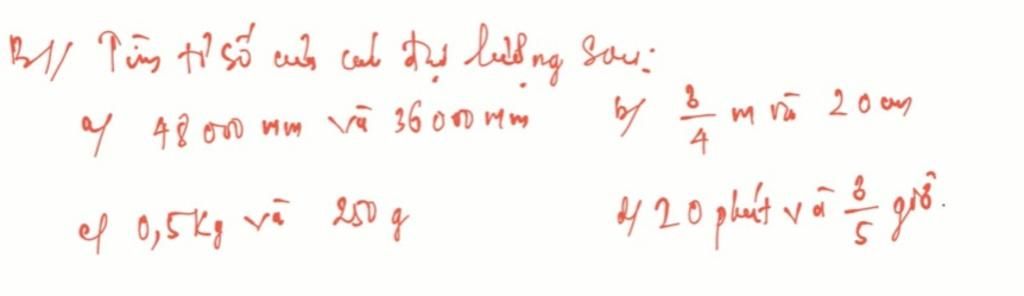 B1// Tìm tỉ số của các đại lượng sau:
a/ 48000 mm và 36000 mm b/ 3/4 m và 20 cm
c/ 0,5 Kg và 250 g d/ 20 phút và 3/5 giờ.